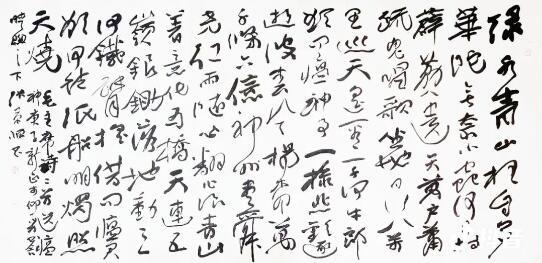 绿水青山枉自多
華佗無奈小虫何千村
薜荔人遗矢万户蕭
疏鬼唱歌坐地日行八万
里巡天遥看一千河牛郎
欲问瘟神事一樣悲歡逐
逝波春风楊柳萬
千條六億神州尽舜
尧红雨随心翻作浪青山
着意化为橋天連五
嶺銀鋤落地動三
河鐵臂摇借问瘟君
欲何往纸船明燭照
天燒
毛主席詩二首送瘟
神